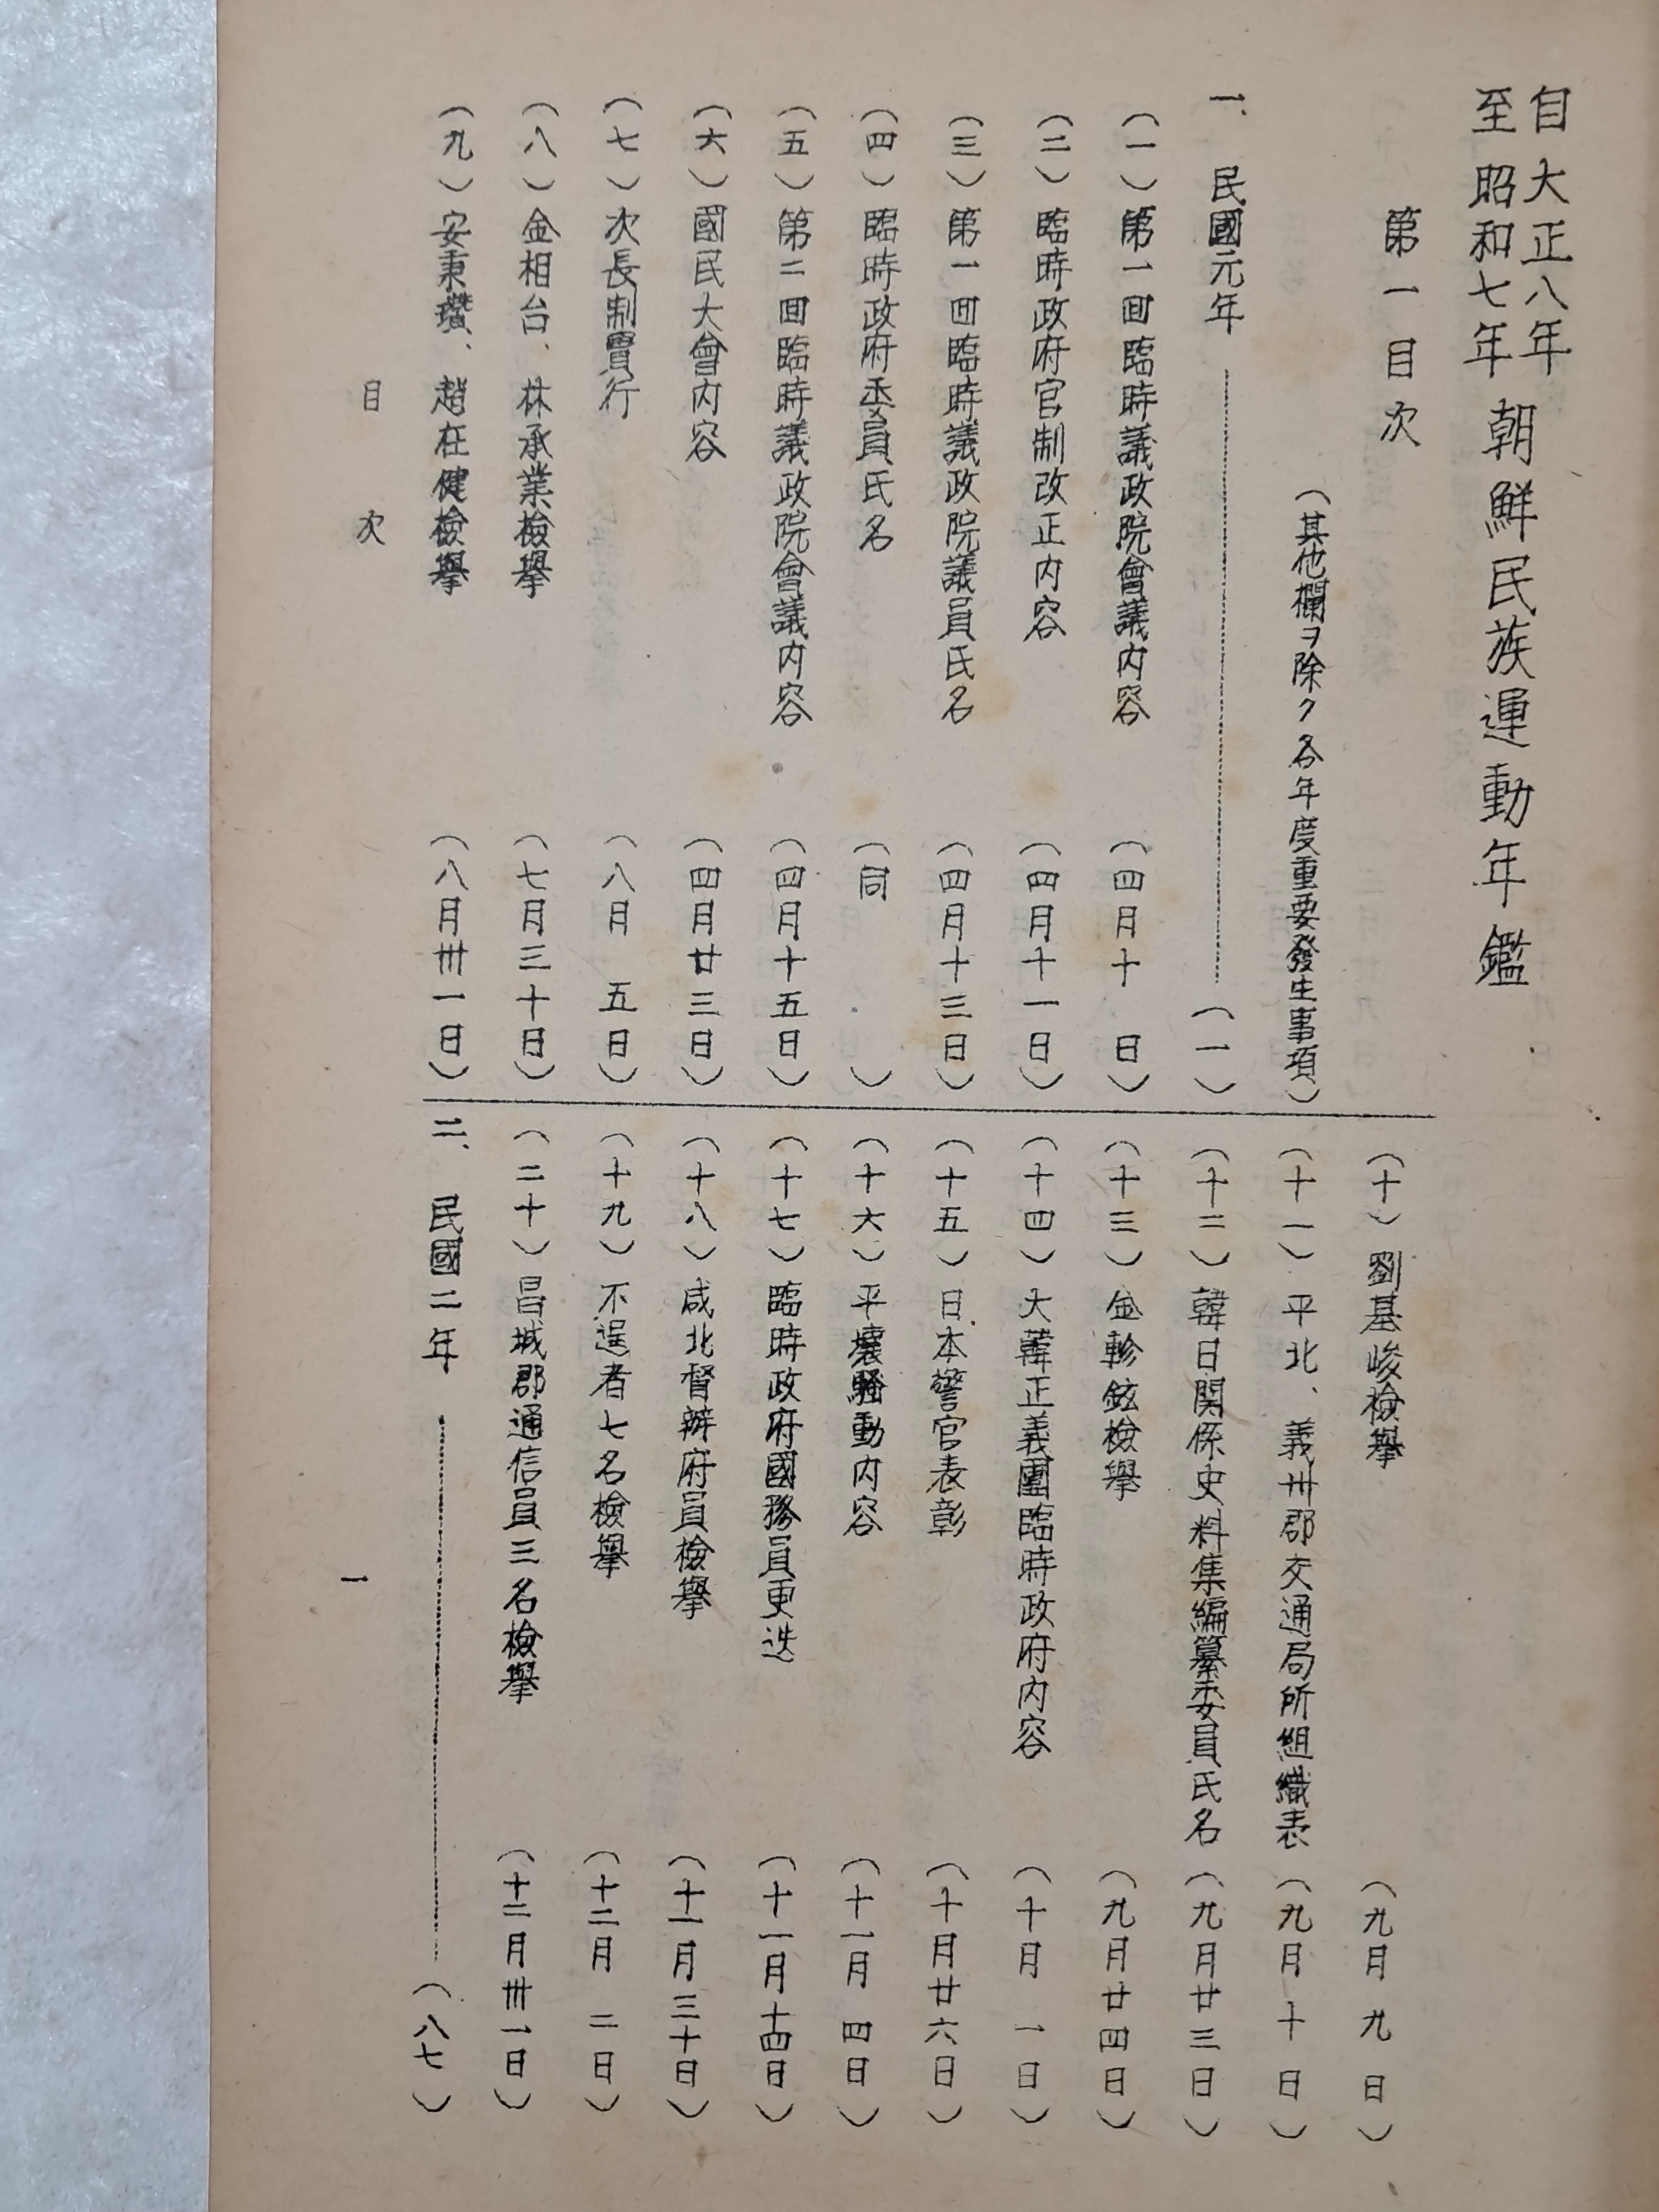 自大正八年
至昭和七年 朝鮮民族運動年鑑
第一 目次
(其他欄ヲ除ク各年度重要發生事項)
一、民國元年 (一)
(一)第一回臨時議政院會議内容 (四月十日)
(二)臨時政府官制改正内容 (四月十一日)
(三)第一回臨時議政院議員氏名 (四月十三日)
(四)臨時政府委員氏名 (同)
(五)第二回臨時議政院會議内容 (四月十五日)
(六)國民大會内容 (四月廿三日)
(七)次長制實行 (八月五日)
(八)金相台、林承業檢擧 (七月三十日)
(九)安秉瓚、趙在健檢擧 (八月卅一日)
(十)劉基峻檢擧 (九月九日)
(十一)平北、義州郡交通局所組織表 (九月十日)
(十二)韓日関係史料集編纂委員氏名 (九月廿三日)
(十三)金軫鉉檢擧 (九月廿四日)
(十四)大韓正義團臨時政府内容 (十月一日)
(十五)日本警官表彰 (十月廿六日)
(十六)平壤騷動内容 (十一月四日)
(十七)臨時政府國務員更迭 (十一月十四日)
(十八)咸北督辦府員檢擧 (十一月三十日)
(十九)不逞者七名檢擧 (十二月二日)
(二十)昌城郡通信員三名檢擧 (十二月卅一日)
二、民國二年 (八七)
目次
一